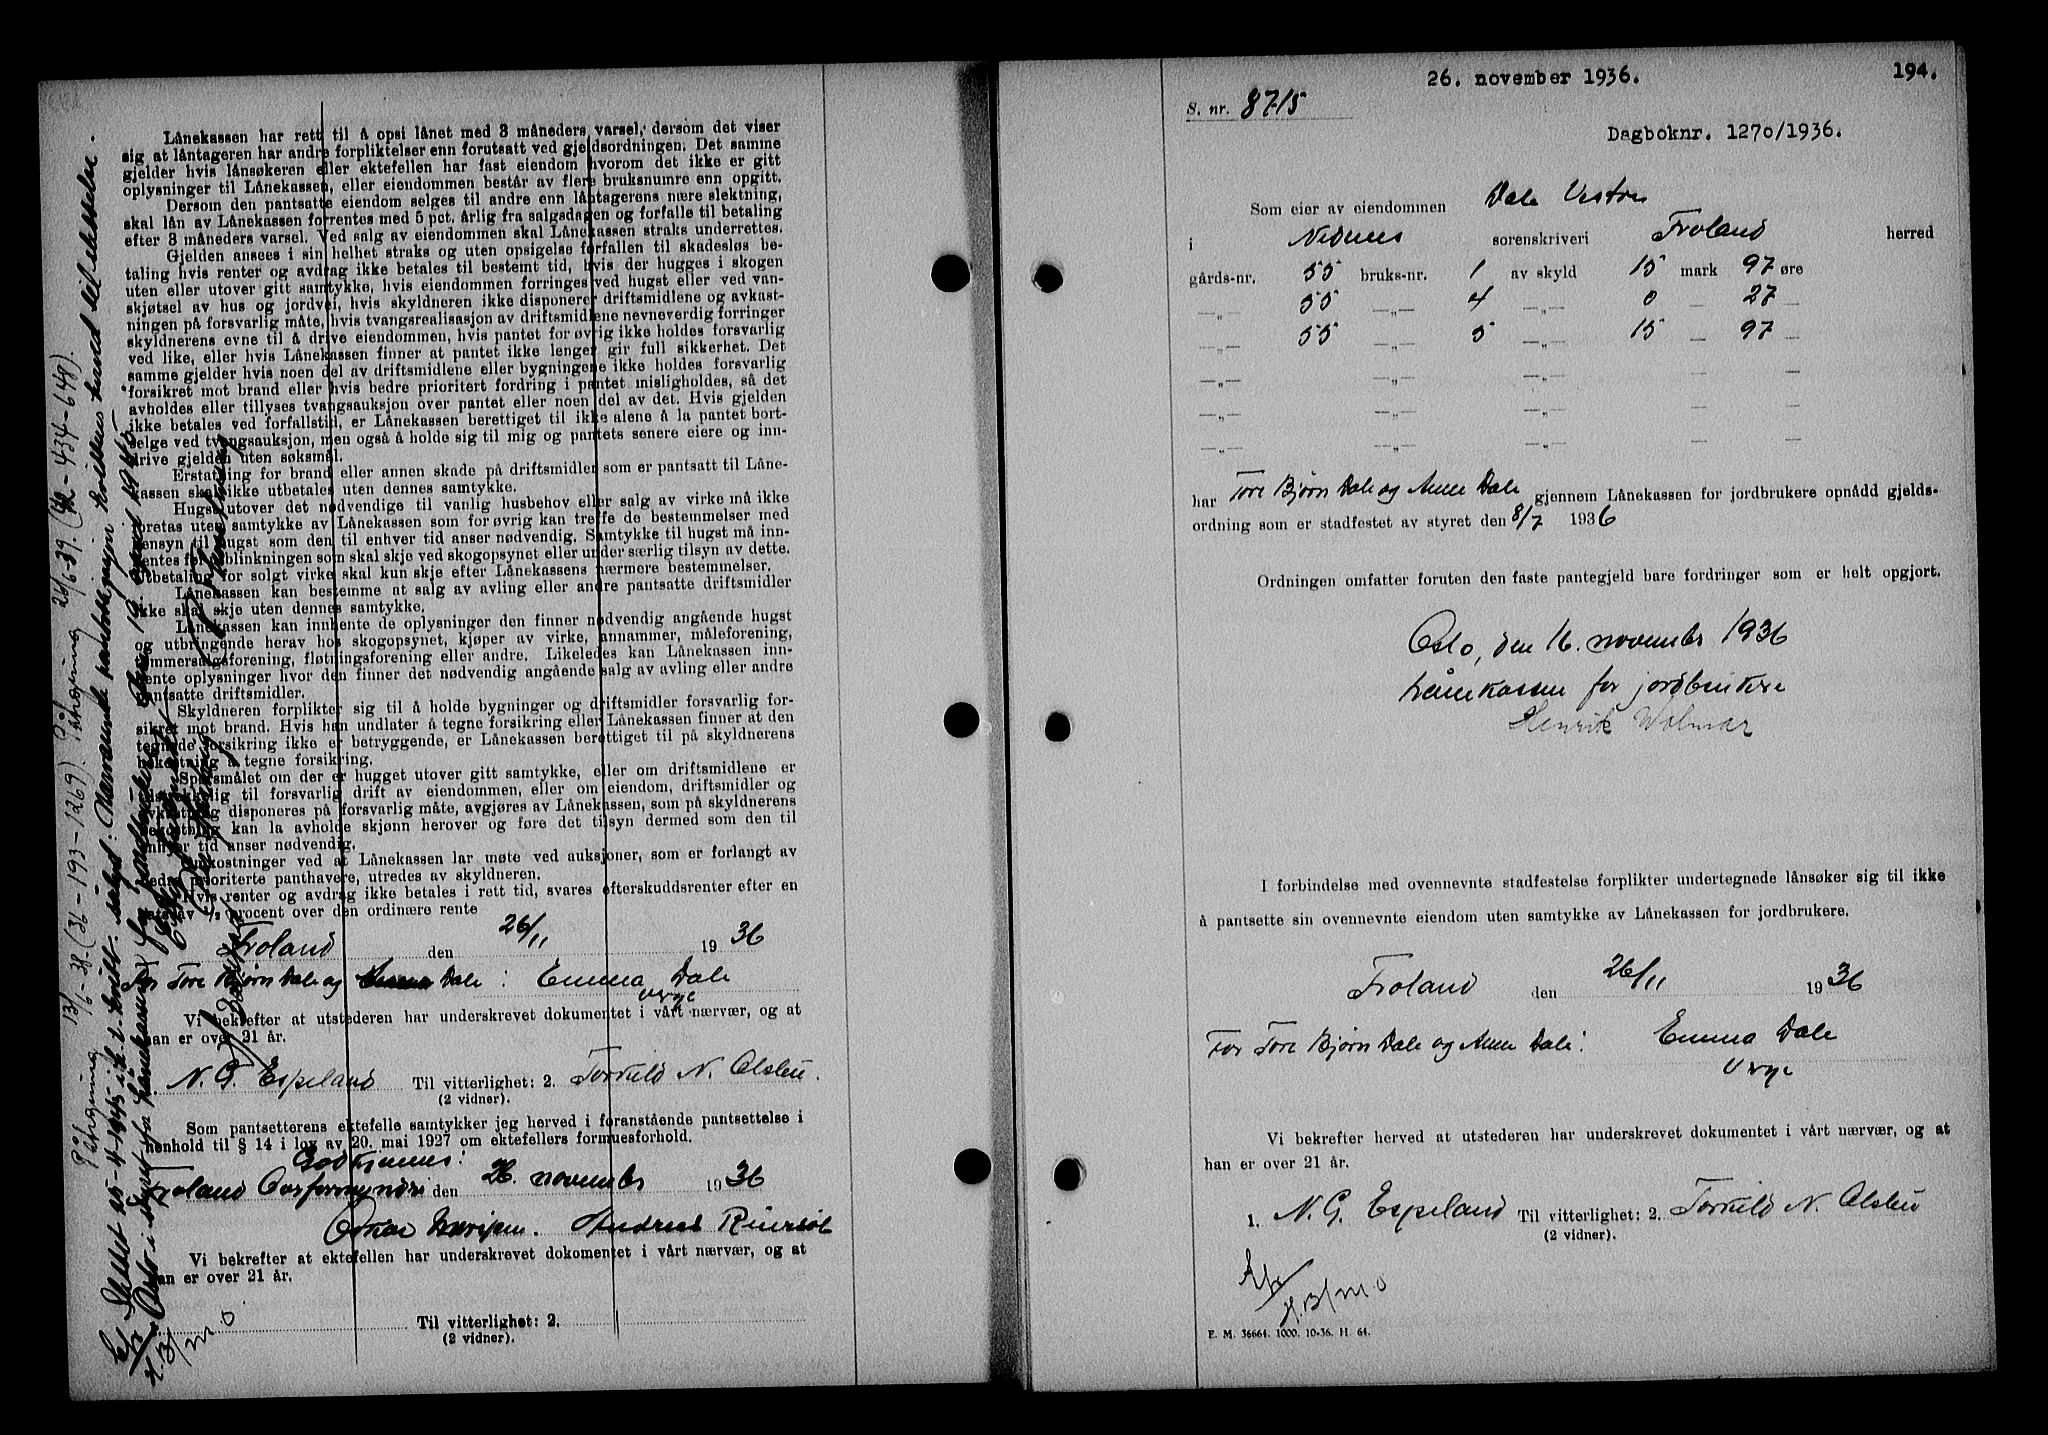 Lånekassen har rett til å opsi lånet med 3 måneders varsel, dersom det viser
sig at låntageren har andre forpliktelser enn forutsatt ved gjeldsordningen. Det samme
gjelder hvis lånsøkeren eller ektefellen har fast eiendom hvorom det ikke er gitt
oplysninger til Lånekassen, eller eiendommen består av flere bruksnumre enn opgitt.
Dersom den pantsatte eiendom selges til andre enn låntagerens nære slektning,
skal lån av Lånekassen forrentes med 5 pct. årlig fra salgsdagen og forfalle til betaling
efter 3 måneders varsel. Ved salg av eiendommen skal Lånekassen straks underrettes.
Gjelden ansees i sin helhet straks og uten opsigelse forfallen til skadesløs be-
taling hvis renter og avdrag ikke betales til bestemt tid, hvis der hugges i skogen
uten eller utover gitt samtykke, hvis eiendommen forringes ved hugst eller ved van-
skjøtsel av hus og jordvei, hvis skyldneren ikke disponerer driftsmidlene og avkast-
ningen på forsvarlig måte, hvis tvangsrealisasjon av driftsmidlene nevneverdig forringer
skyldnerens evne til å drive eiendommen, hvis pantet for øvrig ikke holdes forsvarlig
ved like, eller hvis Lånekassen finner at pantet ikke lenger gir full sikkerhet. Det
samme gjelder hvis noen del av driftsmidlene eller bygningene ikke holdes forsvarlig
forsikret mot brand eller hvis bedre prioritert fordring i pantet misligholdes, så det
avholdes eller tillyses tvangsauksjon over pantet eller noen del av det. Hvis gjelden
ikke betales ved forfallstid, er Lånekassen berettiget til ikke alene å la pantet bort-
selge ved tvangsauksjon, men også å holde sig til mig og pantets senere eiere og inn-
drive gjelden uten søksmål.
Erstatning for brand eller annen skade på driftsmidler som er pantsatt til Låne-
kassen skal ikke utbetales uten dennes samtykke.
Hugst utover det nødvendige til vanlig husbehov eller salg av virke må ikke
foretas uten samtykke av Lånekassen som for øvrig kan treffe de bestemmelser med
hensyn til hugst som den til enhver tid anser nødvendig. Samtykke til hugst må inn-
hentes før utblinkningen som skal skje ved skogopsynet eller under særlig tilsyn av dette.
Utbetaling for solgt virke skal kun skje efter Lånekassens nærmere bestemmelser.
Lånekassen kan bestemme at salg av avling eller andre pantsatte driftsmidler
ikke skal skje uten dennes samtykke.
Lånekassen kan innhente de oplysninger den finner nødvendig angående hugst
og utbringende herav hos skogopsynet, kjøper av virke, annammer, måleforening,
tømmersalgsforening, fløtningsforening eller andre. Likeledes kan Lånekassen inn-
hente oplysninger hvor den finner det nødvendig angående salg av avling eller andre
pantsatte driftsmidler.
Skyldneren forplikter sig til å holde bygninger og driftsmidler forsvarlig for-
sikret mot brand. Hvis han undlater å tegne forsikring eller Lånekassen finner at den
tegnede forsikring ikke er betryggende, er Lånekassen berettiget til på skyldnerens
bekostning å tegne forsikring.
Spørsmålet om der er hugget utover gitt samtykke, eller om driftsmidlene er
tilstrekkelig til forsvarlig drift av eiendommen, eller om eiendom, driftsmidler og
avkastning disponeres på forsvarlig måte, avgjøres av Lånekassen, som på skyldnerens
bekostning kan la avholde skjønn herover og føre det tilsyn dermed som den til
enhver tid anser nødvendig.
Omkostninger ved at Lånekassen lar møte ved auksjoner, som er forlangt av
bedre prioriterte panthavere, utredes av skyldneren.
Hvis renter og avdrag ikke betales i rett tid, svares efterskuddsrenter efter en
sats av 1/2 procent over den ordinære rente
Froland den 26/11 1936
For Tore Bjørn Dale og Anna Dale: Emma Dale
Verge
Vi bekrefter at utstederen har underskrevet dokumentet i vårt nærvær, og at
han er over 21 år.
N. G. Espeland Til vitterlighet: 2. Torvild N. Olsbu.
(2 vidner).
Som pantsetterens ektefelle samtykker jeg herved i foranstående pantsettelse i
henhold til § 14 i lov av 20. mai 1927 om ektefellers formuesforhold.
Godkjennes:
Froland Overformynderi den 26. november 1936
Oskar Andreas Riversøl
Vi bekrefter at ektefellen har underskrevet dokomentet i vårt nærvær, og at
han er over 21 år.
Til vitterlighet: 2.
(2 vidner).
Påtegning 13/6-38. (36-193-1269). Påtegning 26/6-39. (42-434-648).
26. november 1936. 194.
S. nr. 8715
Dagboknr. 1270/1936.
Som eier av eiendommen Dale Vestre
i Nedenes sorenskriveri Froland herred
gårds-nr. 55 bruks-nr. 1 av skyld 15 mark 97 øre
—„— 55 —„— 4 —„— 0 — 27 —
—„— 55 —„— 5 —„— 15 — 97 —
—„— —„— —„— — —
—„— —„— —„— — —
—„— —„— —„— — —
har Tore Bjørn Dale og Anne Dale gjennem Lånekassen for jordbrukere opnådd gjelds-
ordning som er stadfestet av styret den 8/7 1936
Ordningen omfatter foruten den faste pantegjeld bare fordringer som er helt opgjort.
Oslo, den 16. november 1936
Lånekassen for jordbrukere
Henrik Wolmar
I forbindelse med ovennevnte stadfestelse forplikter undertegnede lånsøker sig til ikke
å pantsette sin ovennevnte eiendom uten samtykke av Lånekassen for jordbrukere.
Froland den 26/11 1936
For Tore Bjørn Dale og Anne Dale: Emma Dale
Verge
Vi bekrefter herved at utstederen har underskrevet dokumentet i vårt nærvær, og at
han er over 21 år.
1. N. G. Espeland Til vitterlighet: 2. Torvild N. Olsbu
(2 vidner).
E. M. 36664. 1000. 10-36. H. 64.